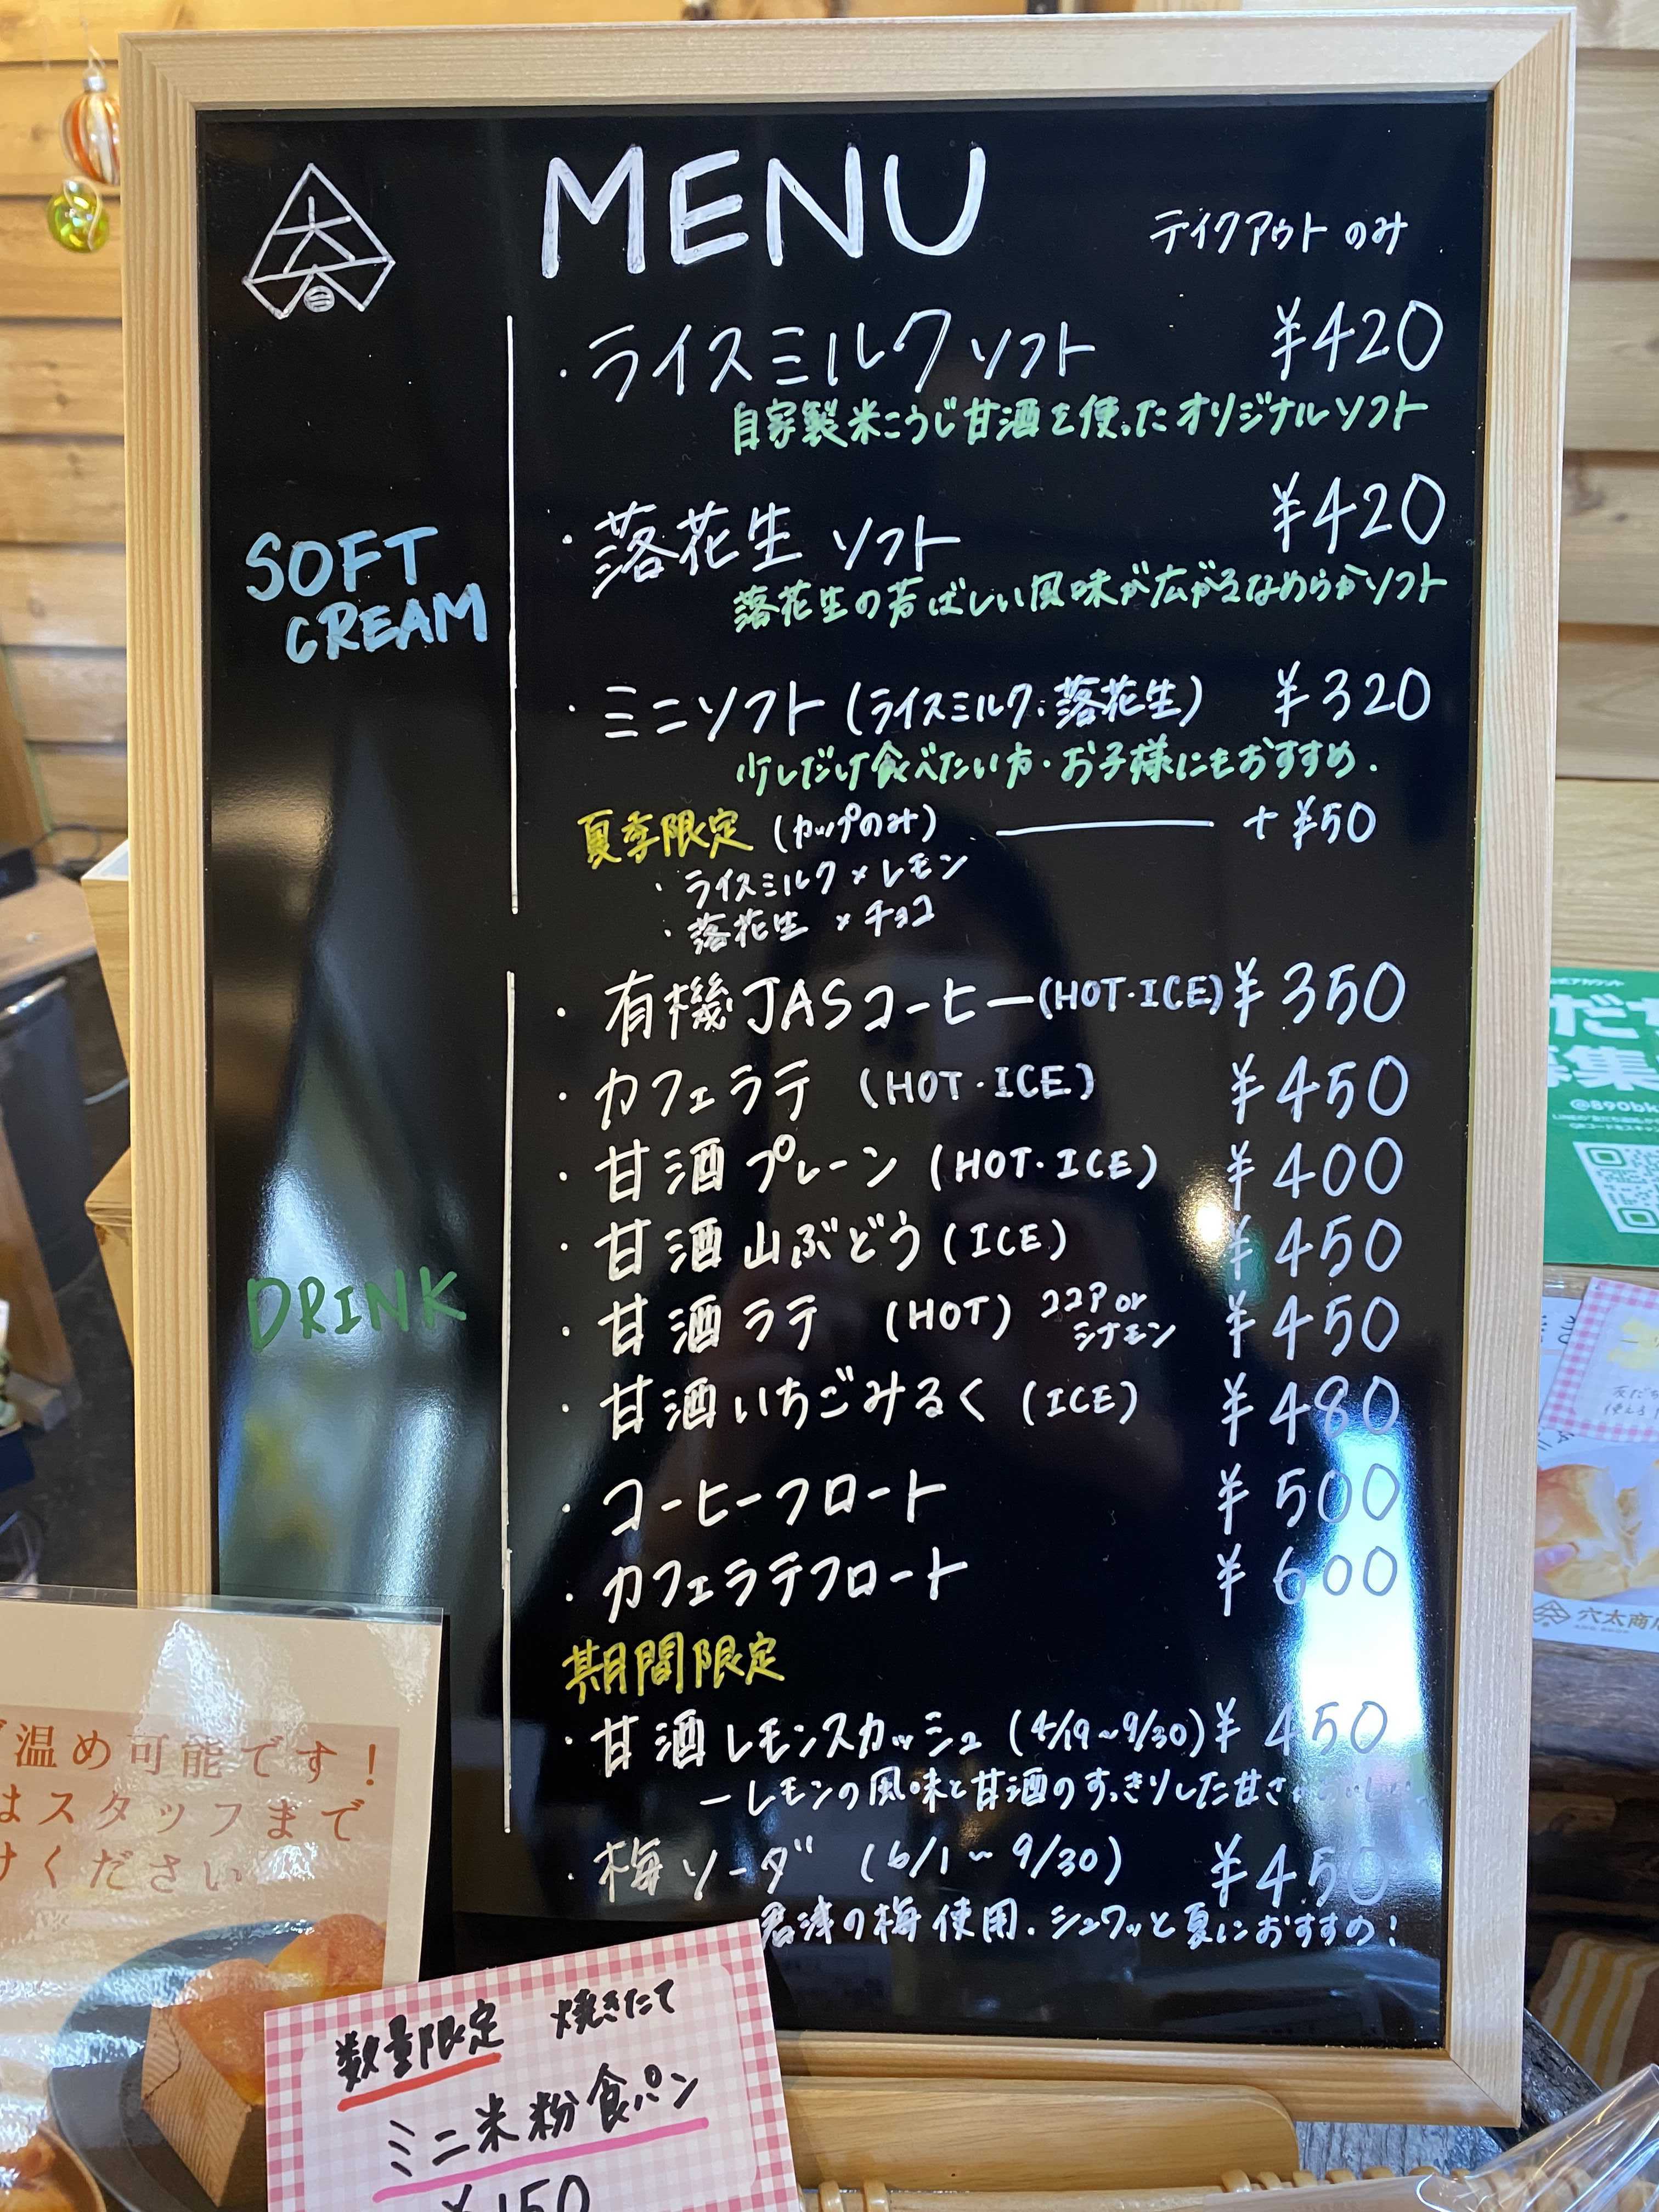 MENU
テイクアウトのみ
SOFT
CREAM
・ライスミルクソフト ¥420
自家製米こうじ甘酒を使ったオリジナルソフト
・落花生ソフト ¥420
落花生の芳ばしい風味が広がるなめらかソフト
・ミニソフト(ライスミルク・落花生) ¥320
少しだけ食べたい方・お子様にもおすすめ.
夏季限定(カップのみ) + ¥50
・ライスミルク×レモン
・落花生×チョコ
DRINK
・有機JASコーヒー(HOT・ICE) ¥350
・カフェラテ (HOT・ICE) ¥450
・甘酒プレーン (HOT・ICE) ¥400
・甘酒山ぶどう(ICE) ¥450
・甘酒ラテ (HOT) ココアor シナモン ¥450
・甘酒いちごみるく (ICE) ¥480
・コーヒーフロート ¥500
・カフェラテフロート ¥600
期間限定
・甘酒レモンスカッシュ (4/19~9/30) ¥450
ーレモンの風味と甘酒のすっきりした甘さ
・梅ソーダ (6/1~9/30) ¥450
君津の梅使用.シュワッと夏におすすめ!
温め可能です!
はスタッフまで
けください
数量限定 焼きたて
ミニ米粉食パン
¥150
だち
募集
@890bk
穴太商店